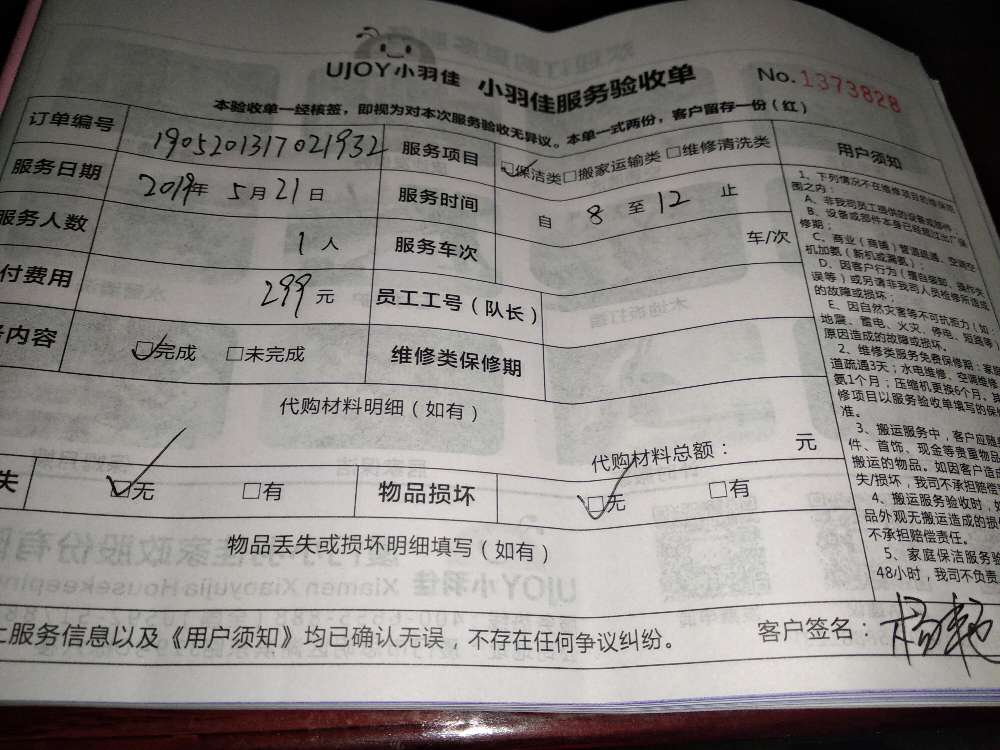 UJOY小羽佳 小羽佳服务验收单 No.1373828
本验收单一经核签，即视为对本次服务验收无异议。本单一式两份，客户留存一份（红）
订单编号 1905201317021932 服务项目 ☑保洁类□搬家运输类□维修清洗类
服务日期 2019年 5月21日 服务时间 自 8 至 12 止
服务人数 1人 服务车次 车/次
付费用 299元 员工工号（队长）
内容 ☑完成 □未完成 维修类保修期
代购材料明细（如有）
代购材料总额： 元
失 ☑无 □有 物品损坏 ☑无 □有
物品丢失或损坏明细填写（如有）
服务信息以及《用户须知》均已确认无误，不存在任何争议纠纷。 客户签名：
用户须知
1、下列情况不在维修项目的维保范
围之内：
A、非我司员工提供的设备或部件
B、设备或部件本身已经超过出厂保
修期；
C、商业（商铺）管道疏通、空调空
机加氨（新机或漏氨）；
D、因客户行为（擅自装卸、操作失
误等）或另请非我司人员检修所造成
的故障或损坏；
E、因自然灾害等不可抗能力（如：
地震、蓄电、火灾、停电、短路等）
原因造成的故障或损坏。
2、维修类服务免费保修期：家庭
道疏通3天；水电维修、空调维修
氨1个月；压缩机更换6个月。其
修项目以服务验收单填写的保修
准。
3、搬运服务中，客户应随
件、首饰、现金等贵重物品
搬运的物品。如因客户造成
失/损坏，我司不承担赔偿
4、搬运服务验收时，如
品外观无搬运造成的损
不承担赔偿责任。
5、家庭保洁服务验
48小时，我司不负责